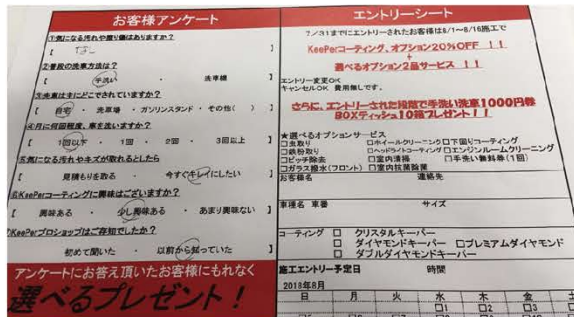 お客様アンケート
①気になる汚れや擦り傷はありますか？
【 なし 】
②普段の洗車方法は？
【 手洗い ・ 洗車機 】
③洗車は主にどこでされていますか？
【 自宅 ・ 洗車場 ・ ガソリンスタンド ・ その他（ ） 】
④月に何回程度、車を洗いますか？
【 1回以下 ・ 1回 ・ 2回 ・ 3回以上 】
⑤気になる汚れやキズが取れるとしたら
【 見積もりを取る ・ 今すぐキレイにしたい 】
⑥KeePerコーティングに興味はございますか？
【 興味ある ・ 少し興味ある ・ あまり興味ない 】
⑦KeePerプロショップはご存知でしたか？
初めて聞いた ・ 以前から知っていた 】
アンケートにお答え頂いたお客様にもれなく
選べるプレゼント！
エントリーシート
7/31までにエントリーされたお客様は8/1～8/16施工で
KeePerコーティング、オプション20%OFF！！
+
選べるオプション2品サービス！！
エントリー変更OK
キャンセルOK 費用無しです。
さらに、エントリーされた段階で手洗い洗車1000円券
BOXティッシュ10箱プレゼント！！
★選べるオプションサービス
□虫取り □ホイールクリーニング □下回りコーティング
□鉄粉取り □ヘッドライトコーティング □エンジンルームクリーニング
□ピッチ除去 □室内清掃 □手洗い無料券（1回）
□ガラス撥水（フロント） □室内抗菌除菌
お客様名 連絡先
車種名 車番 サイズ
コーティング □ クリスタルキーパー
□ ダイヤモンドキーパー □プレミアムダイヤモンド
□ ダブルダイヤモンドキーパー
施工エントリー予定日 時間
2018年8月
日 月 火 水 木 金 土
□1 □2 □3